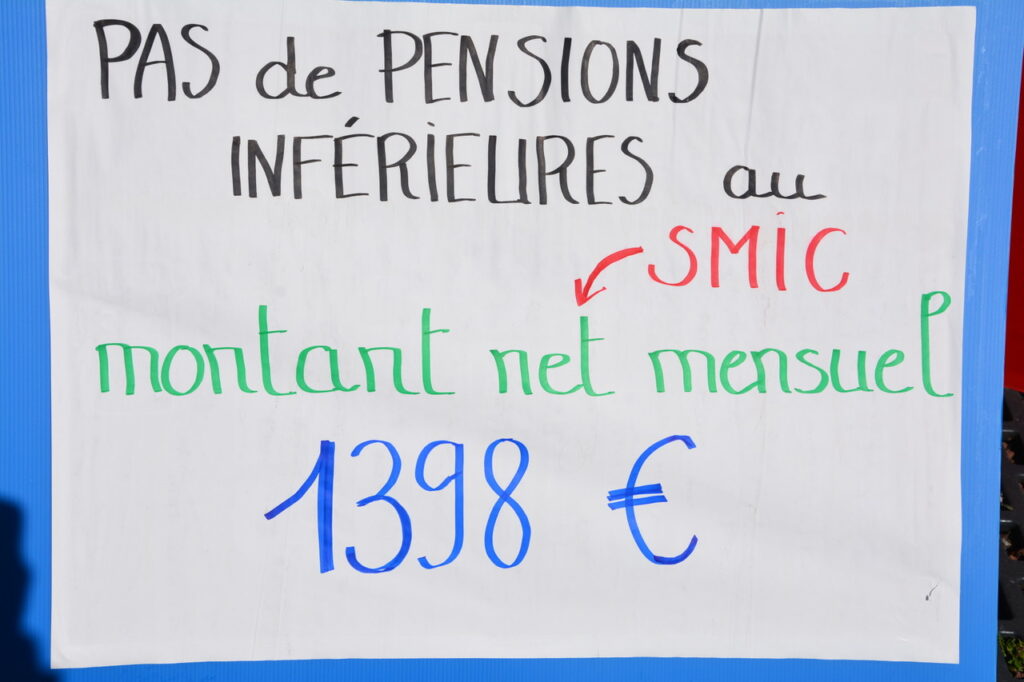 PAS de PENSIONS
INFÉRIEURES au
SMIC
montant net mensuel
1398 €